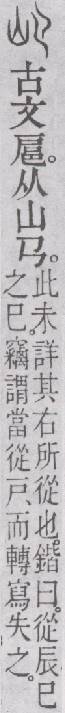 古文扈。从山𢎘。
此未詳其右所從也。鍇曰。從辰巳
之巳。竊謂當從戶、而轉寫失之。